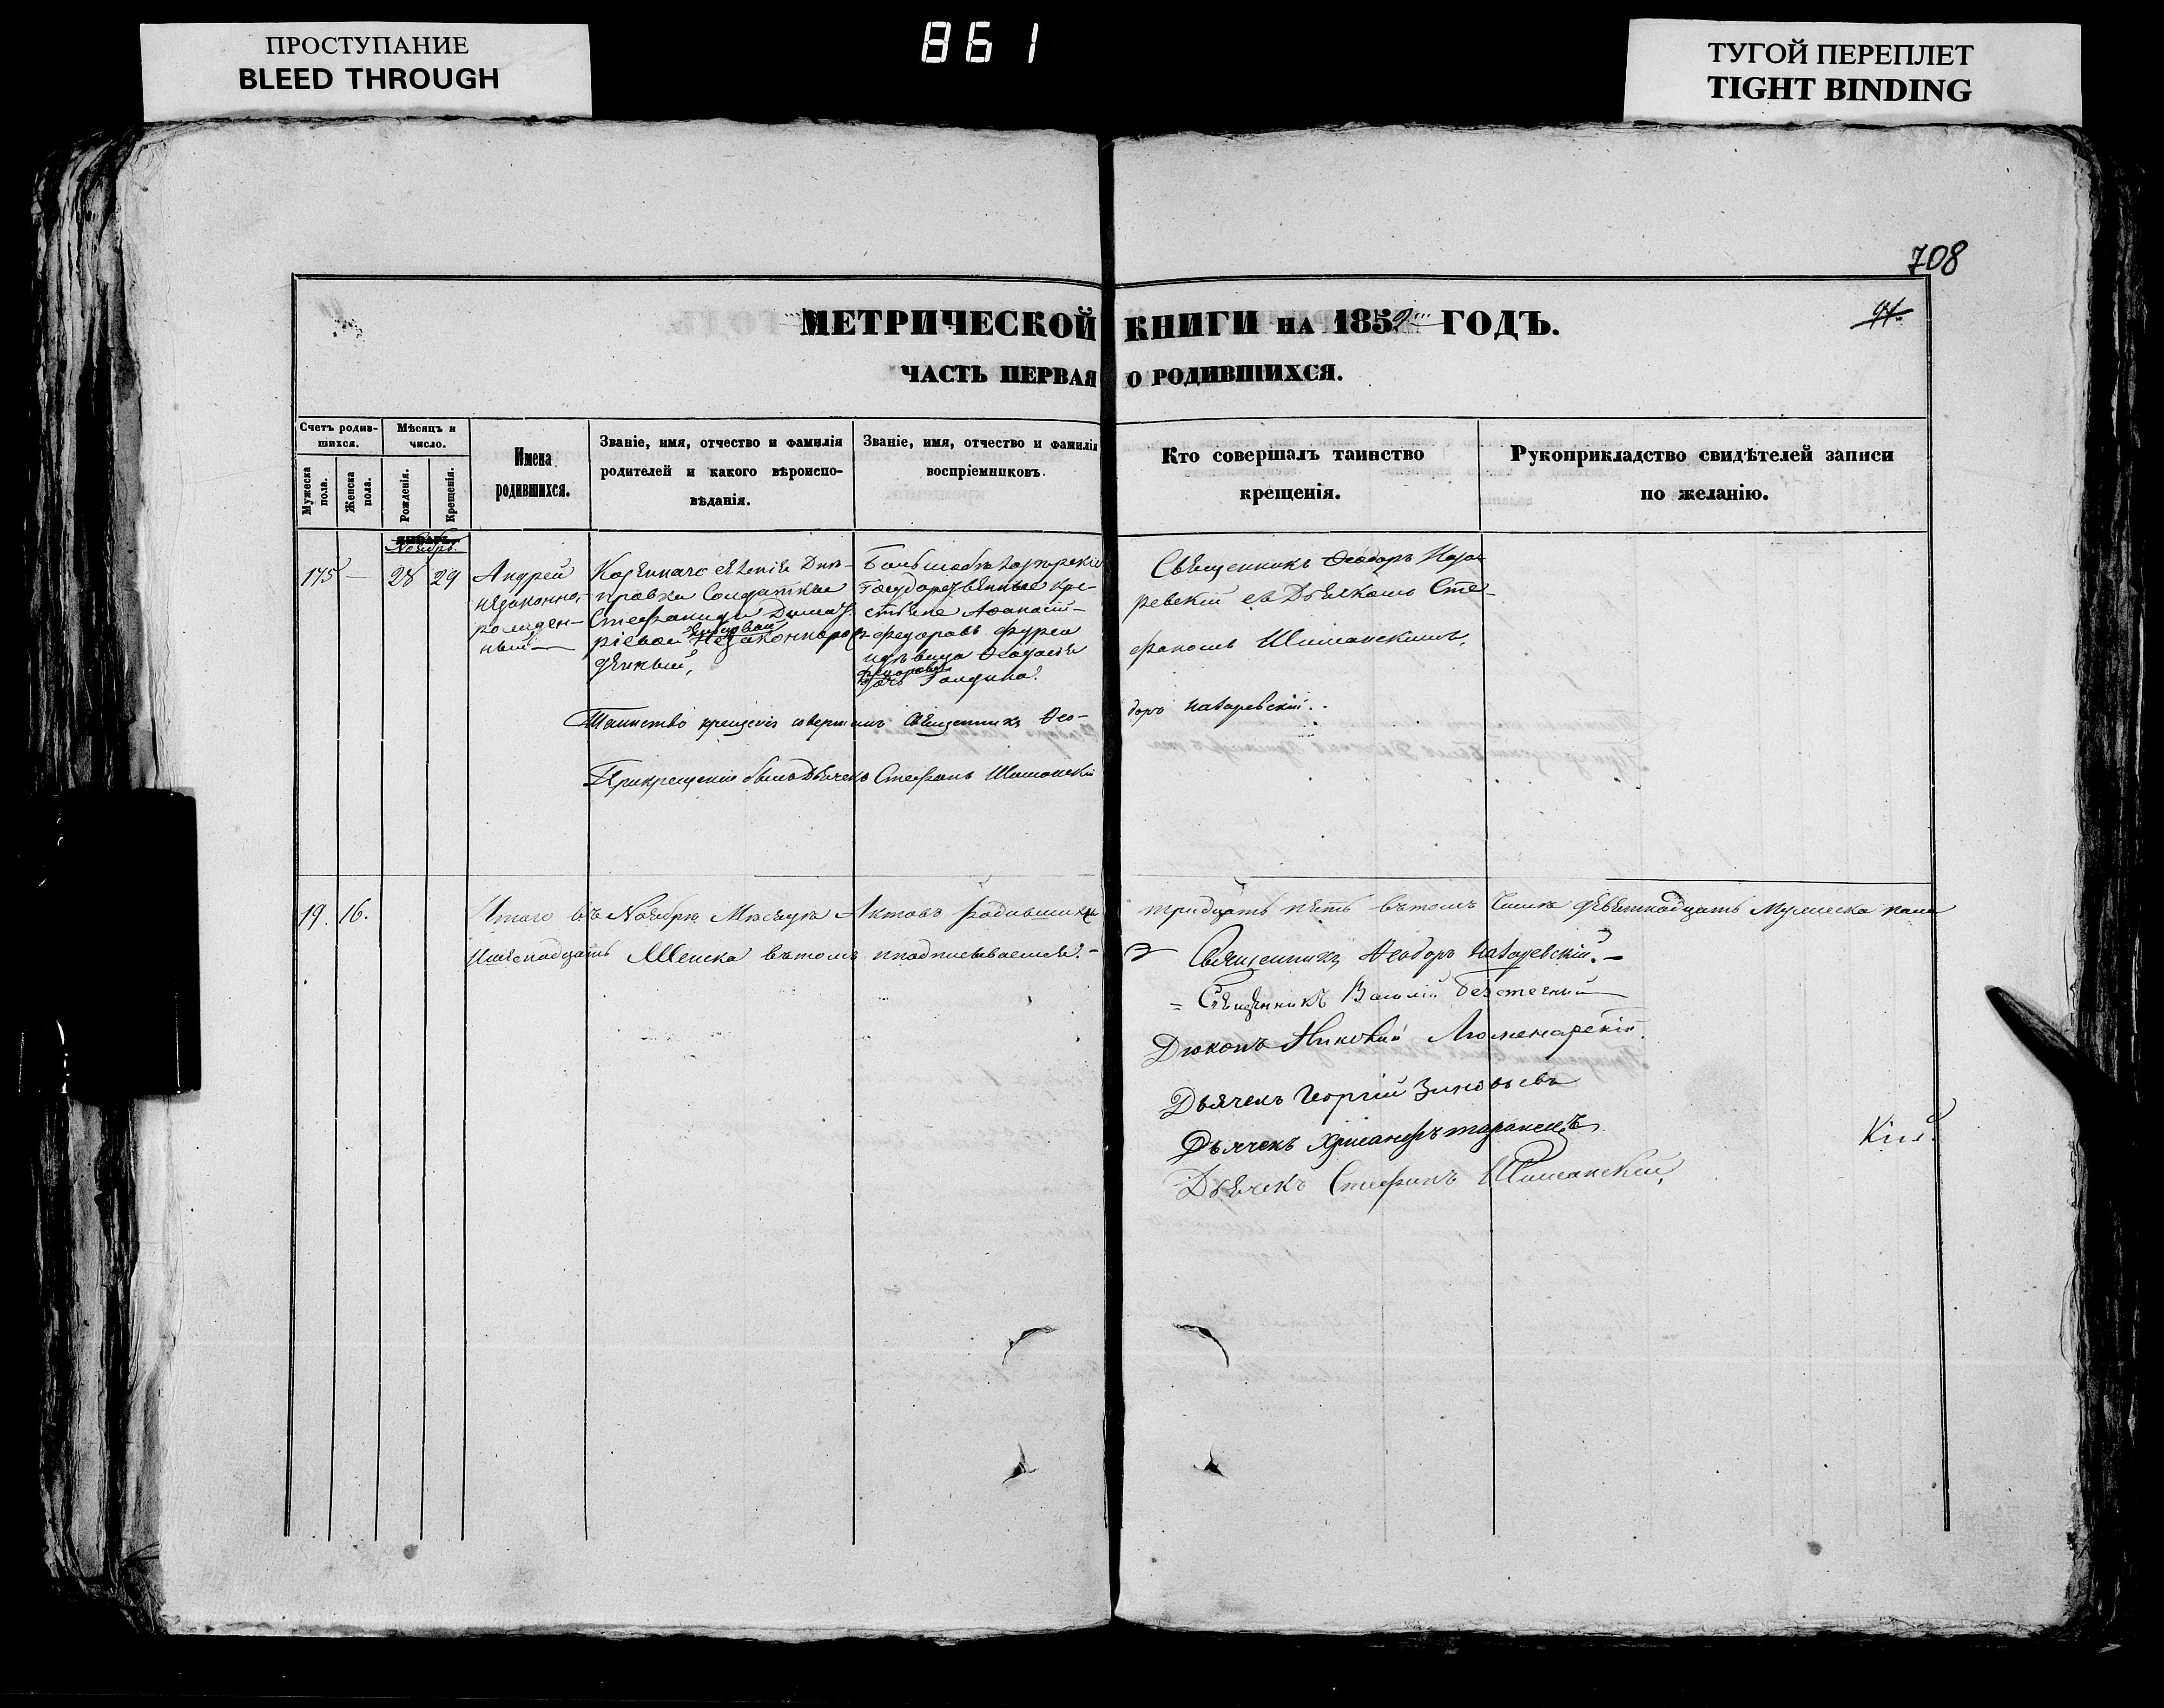 ПРОСТУПАНИЕ
BLEED THROUGH
861
ТУГОЙ ПЕРЕПЛЕТ
TIGHT BINDING
708
МЕТРИЧЕСКОЙ КНИГИ НА 1852 ГОДЪ.
ЧАСТЬ ПЕРВАЯ О РОДИВШИХСЯ.
Счетъ родив-
шихся.
Мужеска пола.
Женска пола.
Мѣсяцъ и
число.
Рожденія.
Крещенія.
Имена
родившихся.
Званіе, имя, отчество и фамилія
родителей и какого вѣроиспо-
вѣданія.
Званіе, имя, отчество и фамилія
воспріемниковъ.
Кто совершалъ таинство
крещенія.
Рукоприкладство свидѣтелей записи
по желанію.
Ноябрь.
175 — 28 29
Андрей
незаконно-
рожден-
ный
Казеннаго селенія Дни-
провки Солдатки
Стефаниды
вдовой
Незаконноро
денный,
Государственные кре-
стьяне Афанасій
Федоровъ
идѣвица
Федорова
дочь
Священникъ Ѳеодоръ Наза-
ревскій съ Дьячкомъ Сте-
фаномъ Шиманскимъ.
Таинство крещенія совершалъ Священникъ Ѳео-
доръ Назаревскій..
При крещеніи былъ Дьячекъ Стефанъ Шиманскій
19. 16.
Итаго въ Ноябрѣ Мѣсяцѣ Актовъ родившихся
тридцать пять вътомъ Числѣ девятнадцать Мужеска пола
шеснадцать Женска вътомъ иподписываемся.-
Священникъ Ѳеодоръ Назаревскій.-
Священникъ Василій
Дьячекъ Георгій Зиновьевъ
Дьячекъ
Дьячекъ Стефанъ Шиманскій,